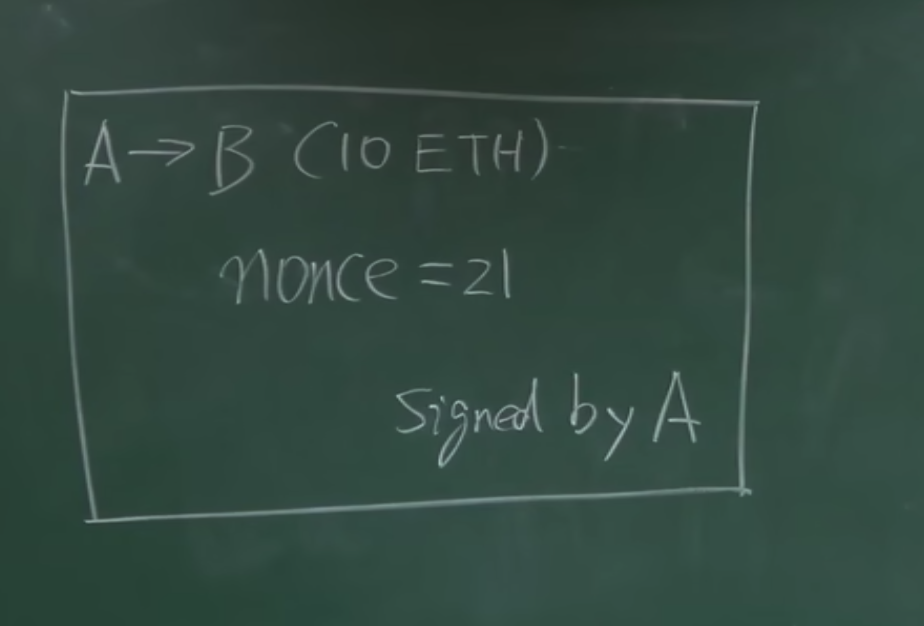 A→B (10 ETH)
nonce=21
Signed by A